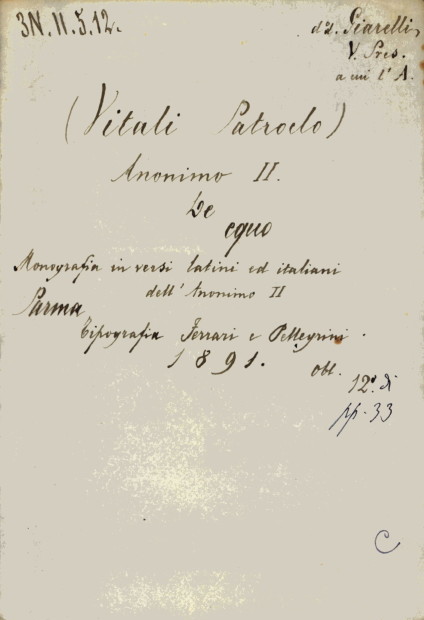 3N.II.5.12.
dz. Giarelli,
V. Pres.
a cui l'A.
(Vitali Patroclo)
Anonimo II.
De
equo
Monografia in versi latini ed italiani
dell'Anonimo II
Parma
Tipografia Ferrari e Pellegrini.
1891.
obl.
12° di
pp. 33
C